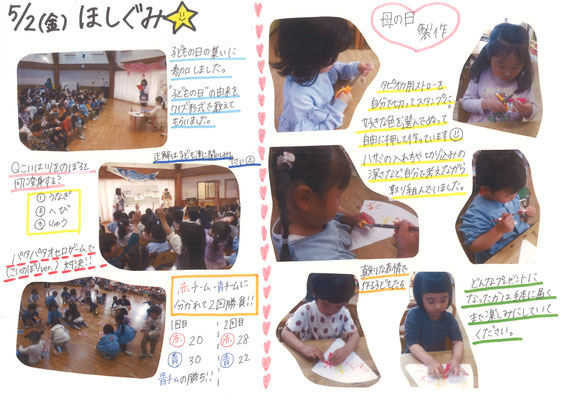 5/2(金) ほしぐみ
子どもの日の集いに
参加しました。
"子どもの日"の由来を
クイズ形式で教えて
もらいました。
正解は子ども達に聞いてみて
ください
Qこいはりゅうをのぼると
何に変身する?
①うなぎ
②へび
③りゅう
パタパタオセロゲームで
(こいのぼりver.) 対決!!
赤チーム・青チームに
分かれて2回勝負!!
1回目 2回目
赤 20 赤 28
青 30 青 22
青チームの勝ち!!
母の日
製作
タピオカ用ストローを
自分で切ってスタンプに
好きな色を選んでぬって
自由に押して作っています
ハサミの入れ方や切り込みの
深さなど自分で考えながら
取り組んでいました。
真剣な表情で
作る子どもたち
どんなプレゼントに
なったかは手元に届く
まで楽しみにしていて
ください。